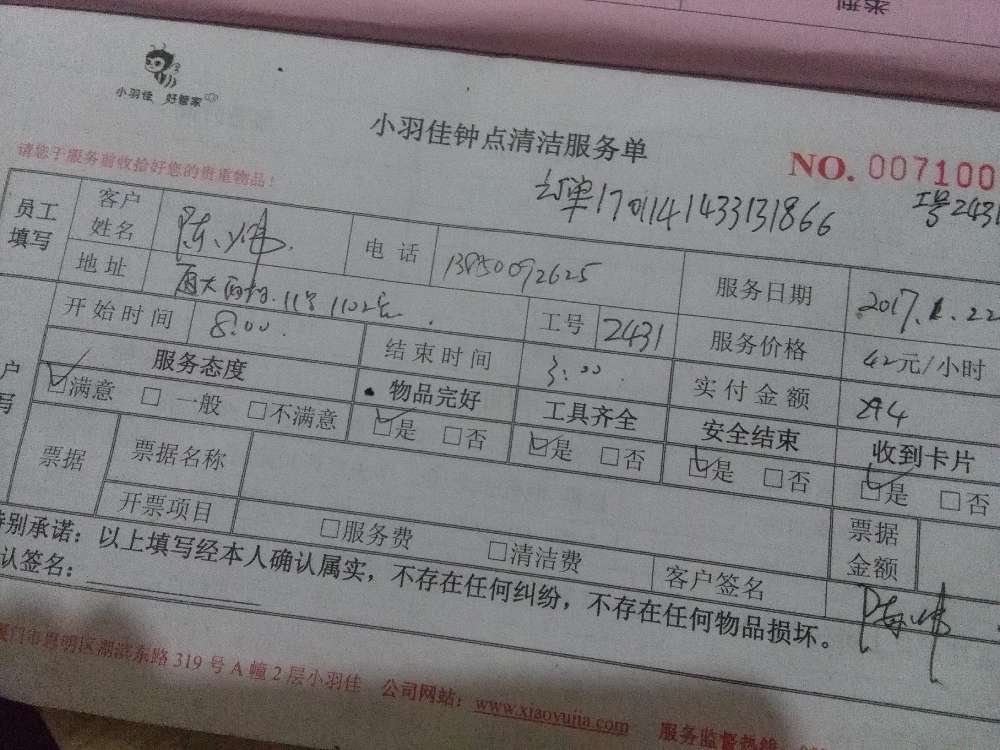 类型
小羽佳 好管家
小羽佳钟点清洁服务单
NO. 007100
请您于服务前收拾好您的贵重物品!
订单170114143313866 工号2431
员工填写 客户姓名 陈 电话 13850092625 服务日期 2017.1.22
地址 11号1102室 工号 2431 服务价格 42元/小时
开始时间 8:00. 结束时间 3:00. 实付金额 294
户 写 服务态度 物品完好 工具齐全 安全结束 收到卡片
☑满意 □一般 □不满意 ☑是 □否 ☑是 □否 ☑是 □否 ☑是 □否
票据 票据名称 票据金额
开票项目 □服务费 □清洁费 客户签名 陈
特别承诺：以上填写经本人确认属实，不存在任何纠纷，不存在任何物品损坏。
认签名：
厦门市思明区湖滨东路319号A幢2层小羽佳 公司网站：www.xiaoyujia.com 服务监督热线